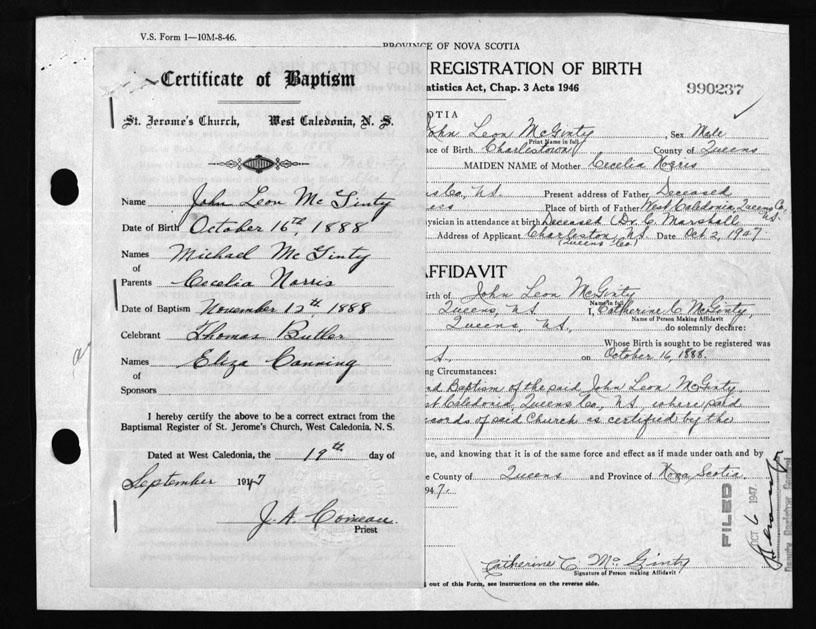 V.S. Form 1—10M-8-46.
PROVINCE OF NOVA SCOTIA
Certificate of Baptism
St. Jerome's Church, West Caledonia, N. S.
Name John Leon McGinty
Date of Birth October 16th, 1888
Names of Parents Michael McGinty
Cecelia Norris
Date of Baptism November 12th, 1888
Celebrant Thomas Butler
Names of Sponsors Eliza Canning
I hereby certify the above to be a correct extract from the
Baptismal Register of St. Jerome's Church, West Caledonia, N. S.
Dated at West Caledonia, the 19th day of
September 1947
J. A. Comeau
Priest
REGISTRATION OF BIRTH
atistics Act, Chap. 3 Acts 1946
990237
OTIA
John Leon McGinty, Sex Male
Print Name in full
ace of Birth Charlestown County of Queens
MAIDEN NAME of Mother Cecelia Norris
ns Co, N.S. Present address of Father Deceased
Place of birth of Father West Caledonia, Queens Co, N.S.
ysician in attendance at birth Deceased (Dr. C. Marshall
Address of Applicant Charleston, N.S. Date Oct 2, 1947.
(Queens Co)
AFFIDAVIT
irth of John Leon McGinty
Name in full
Queens, N.S. I, Catherine C McGinty,
Name of Person Making Affidavit
Queens, N.S., do solemnly declare:
Whose Birth is sought to be registered was
S., on October 16, 1888.
ng Circumstances:
nd Baptism of the said John Leon McGinty
st Caledonia, Queens Co., N.S, where said
ecords of said Church is certified by the
ue, and knowing that it is of the same force and effect as if made under oath and by
e County of Queens and Province of Nova Scotia.
947.
FILED
OCT 6 1947
Deputy Registrar General
Catherine C McGinty
Signature of Person making Affidavit
out of this Form, see instructions on the reverse side.